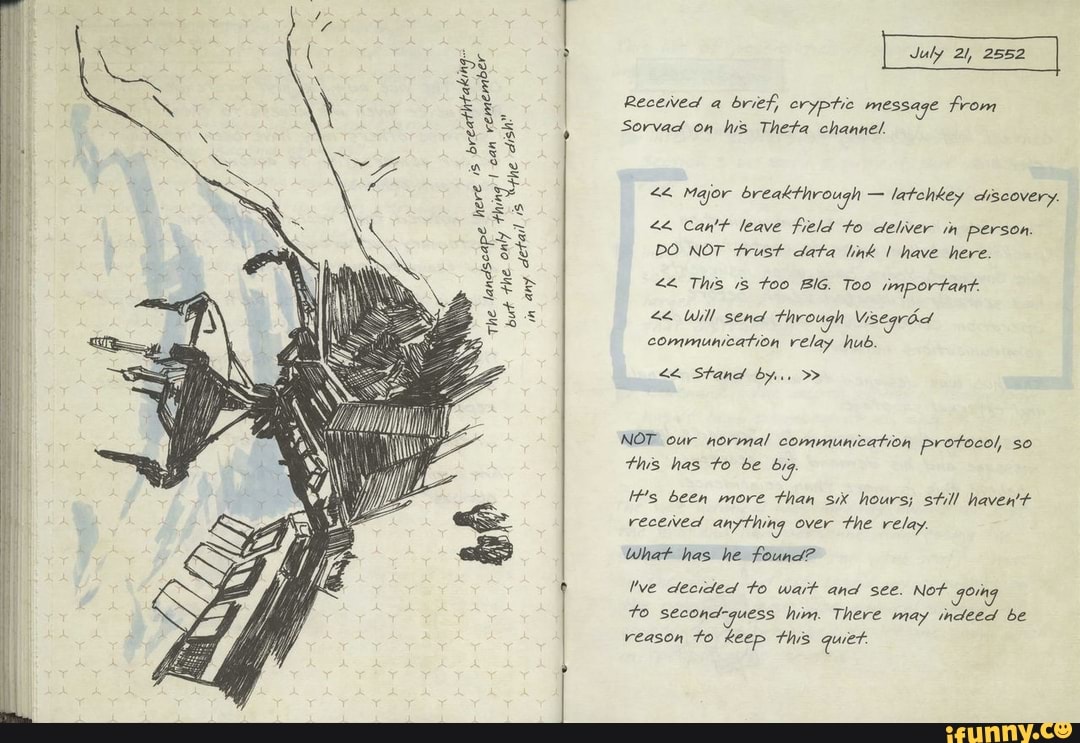 The landscape here is breathtaking...
but the only thing I can remember
in any detail is "the dish."
July 21, 2552
Received a brief, cryptic message from
Sorvad on his Theta channel.
<< Major breakthrough — latchkey discovery.
<< Can't leave field to deliver in person.
DO NOT trust data link I have here.
<< This is too BIG. Too important.
<< Will send through Visegrád
communication relay hub.
<< Stand by... >>
NOT our normal communication protocol, so
this has to be big.
It's been more than six hours; still haven't
received anything over the relay.
What has he found?
I've decided to wait and see. Not going
to second-guess him. There may indeed be
reason to keep this quiet.
ifunny.co